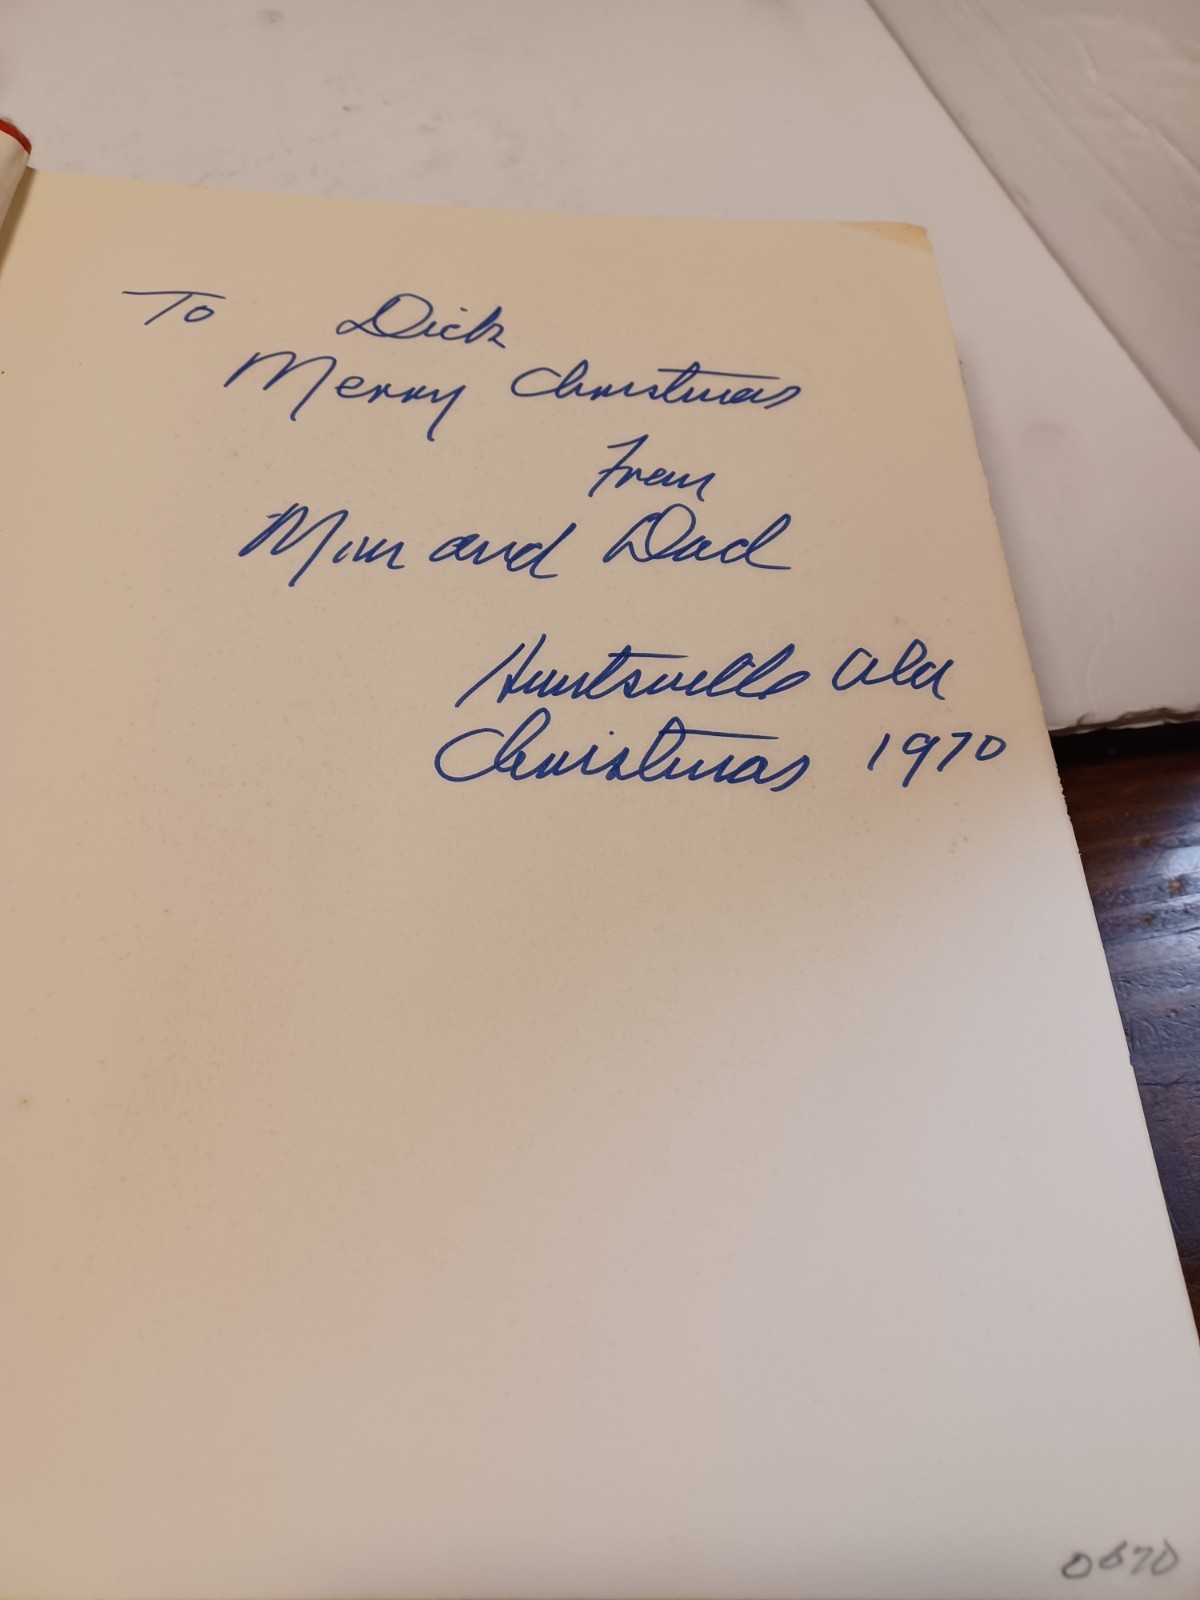 To Dick
Merry Christmas
From
Mim and Dad
Huntsville Ala
Christmas 1970
0670